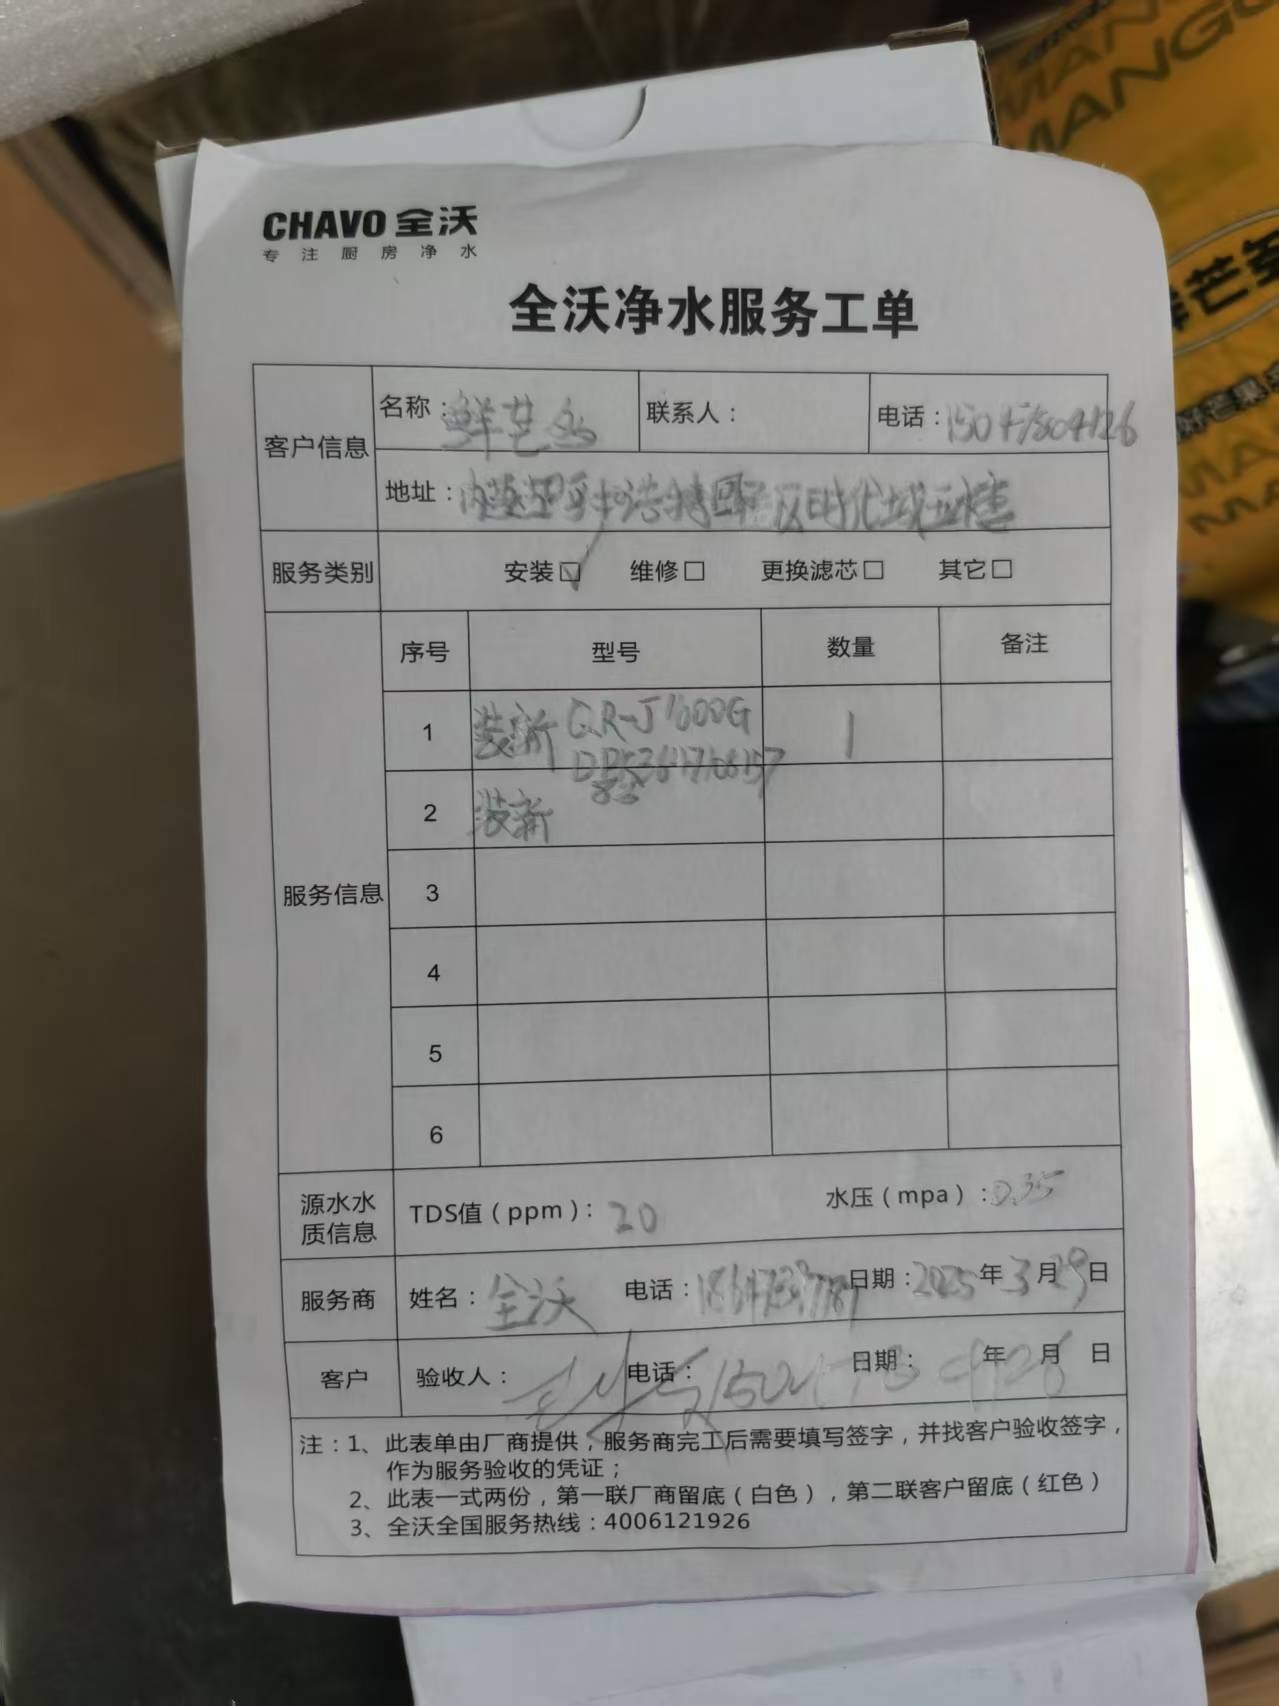 CHAVO 全沃
专注厨房净水
全沃净水服务工单
客户信息
名称：鲜芒
联系人：
电话：
地址：内蒙 呼和浩特 区时代城
服务类别
安装☑ 维修□ 更换滤芯□ 其它□
服务信息
序号 型号 数量 备注
1 装新 QR-J1600G 1
2 装新
3
4
5
6
源水水质信息
TDS值（ppm）：20
水压（mpa）：0.35
服务商
姓名：全沃
电话：
日期：2025年3月29日
客户
验收人：
电话：
日期： 年 月 日
注：1、此表单由厂商提供，服务商完工后需要填写签字，并找客户验收签字，
作为服务验收的凭证；
2、此表一式两份，第一联厂商留底（白色），第二联客户留底（红色）
3、全沃全国服务热线：4006121926
MANGO